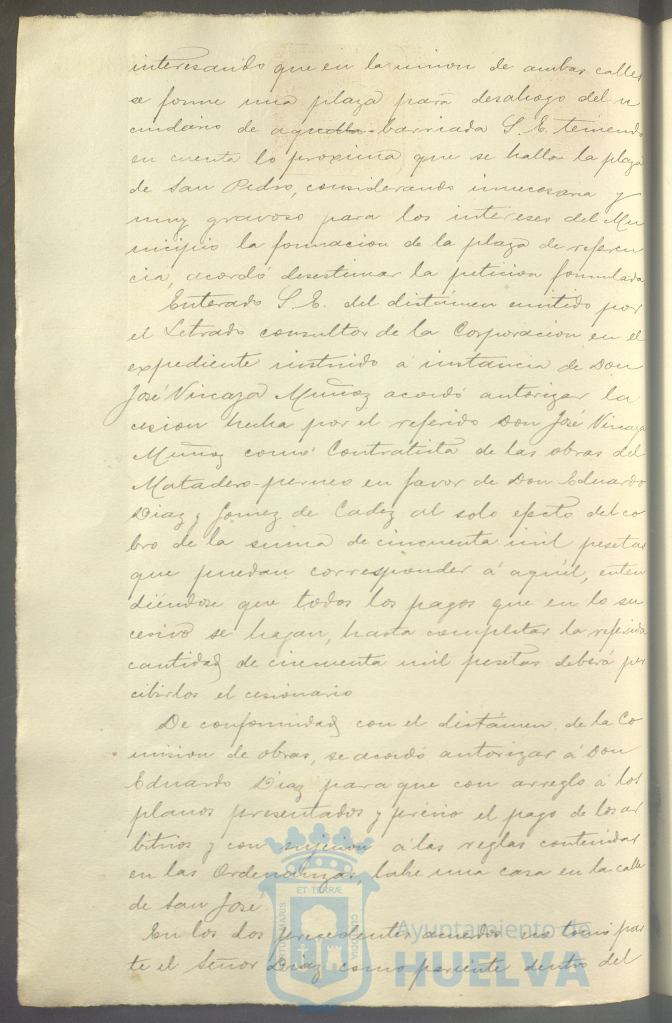 interesando que en la union de ambas calles
se forme una plaza para desahogo del ve
cindario de aquella barriada S. E. teniendo
en cuenta lo proxima que se halla la plaza
de San Pedro, considerando innecesaria y
muy gravoso para los intereses del Mu
nicipio la formacion de la plaza de referen
cia, acordó desestimar la peticion formulada
Enterado S. E. del dictámen emitido por
el Letrado consultor de la Corporacion en el
expediente instruido á instancia de Don
José Vincaza Muñoz acordó autorizar la
cesion hecha por el referido Don José Vincaza
Muñoz como Contratista de las obras del
Matadero-perneo en favor de Don Eduardo
Diaz y Gomez de Cadiz al solo efecto del co
bro de la suma de cincuenta mil pesetas
que puedan corresponder á aquél, enten
diéndose que todos los pagos que en lo su
cesivo se hagan, hasta completar la referida
cantidad de cincuenta mil pesetas deberá per
cibirlos el cesionario
De conformidad con el dictámen de la Co
mision de obras, se acordó autorizar á Don
Eduardo Diaz para que con arreglo á los
planos presentados y prévio el pago de los ar
bitrios y con sujecion á las reglas contenidas
en las Ordenanzas, labre una casa en la calle
de San José
En los dos precedentes acuerdos no tomó par
te el Señor Diaz como pariente dentro del
ET TERRÆ
PORTUS MARIS
CUSTODIA
Ayuntamiento de
HUELVA